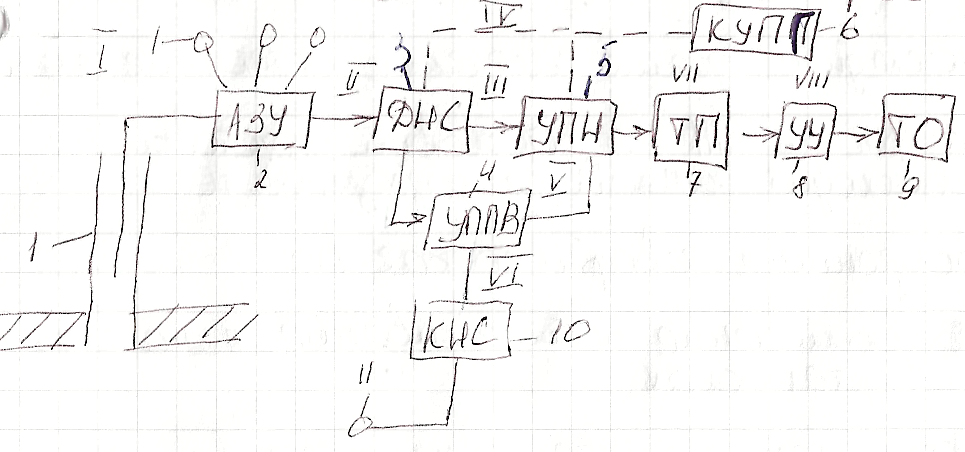 IV
I 1 КУПП 6
II 3 III 5 VII VIII
АЗУ ДНС УПН ТП УУ ТО
2 4 V 7 8 9
УППВ
1 VI
КНС 10
11